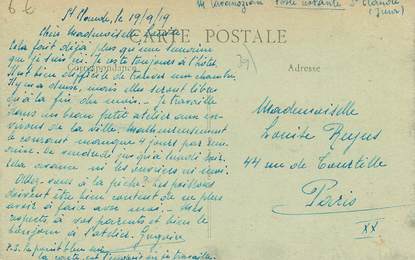 St Claude, le 19/9/19
CARTE POSTALE
Correspondance
Adresse
Chère Mademoiselle Louise
Cela fait déjà plus qu'une semaine
que je suis ici. Je reste toujours à l'hôtel.
Il est bien difficile de trouver une chambre.
Il y en a deux, mais elles seront libres
qu'à la fin du mois. Je travaille
dans un beau petit atelier aux en-
virons de la ville. Malheureusement
le courant manque 4 jours par se-
maine. Le vendredi jusqu'à lundi soir.
Cela arrange ni les ouvriers ni moi.
Allez-vous à la pêche? Les poissons
doivent être bien content de ne plus
avoir à faire avec moi. Mes
respects à vos parents et bien le
bonjour à l'atelier.
P.S.
Mademoiselle
Louise
44 rue de Tourtille
Paris
XX
Poste restante St Claude
(Jura)